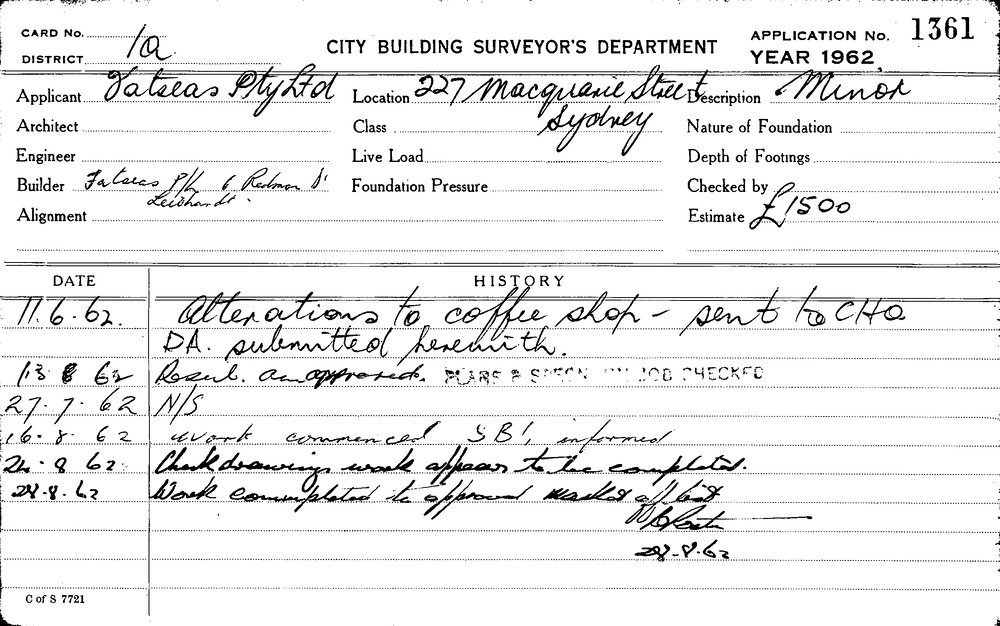 CARD No.
DISTRICT 1a
CITY BUILDING SURVEYOR'S DEPARTMENT
APPLICATION No. 1361
YEAR 1962
Applicant Fatseas Pty Ltd Location 227 Macquarie Street Description Minor
Sydney
Architect Class Nature of Foundation
Engineer Live Load Depth of Footings
Builder Fatseas P/L 6 St Foundation Pressure Checked by
Leichhardt.
Alignment Estimate £1500
DATE HISTORY
11.6.62. Alterations to coffee shop - sent to CHO
DA. submitted herewith.
13 8 62 approved. PLANS & SPECN ON JOB CHECKED
27.7.62 N/S
16.8.62 work commenced SBI, informed
24.8.62 Check drawings work appears to be completed.
28.8.62 Work completed to approval marked off list
28.8.62
C of S 7721